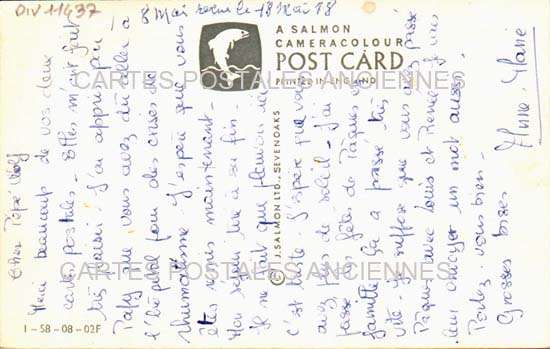 DIV 11437
8 Mai reçue le 18 Mai 78
A SALMON
CAMERACOLOUR
POST CARD
PRINTED IN ENGLAND
© J. SALMON LTD., SEVENOAKS
CARTES POSTALES ANCIENNES
CARTES POSTALES ANCIENNES
1 - 58 - 08 - 02F
Cher Pépé
Merci beaucoup de vos deux
cartes postales - Elles m'ont fait
très plaisir. J'ai appris par
Paty que vous avez dû aller à
l'hôpital pour des crises de
rhumatisme. J'espère que vous
êtes remis maintenant -
Mon séjour tire à sa fin -
Il ne fait que pleuvoir ici
c'est triste. J'espère que vous
avez plus de soleil - J'ai
passé les fêtes de Pâques en
famille. Ça a passé très
vite - je suppose que vous avez passé
Pâques avec Louis et Renée. Je vais
leur envoyer un mot aussi.
Portez-vous bien -
Grosses bises
Anne-Marie